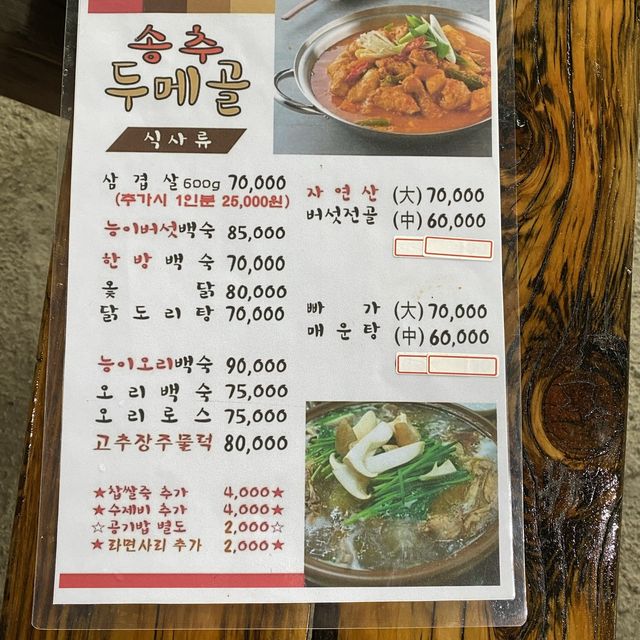 송추
두메골
식사류
삼겹살 600g 70,000
(추가시 1인분 25,000원)
능이버섯백숙 85,000
한방백숙 70,000
옻닭 80,000
닭도리탕 70,000
능이오리백숙 90,000
오리백숙 75,000
오리로스 75,000
고추장주물럭 80,000
★찹쌀죽 추가 4,000★
★수제비 추가 4,000★
☆공기밥 별도 2,000☆
★라면사리 추가 2,000★
자연산 (大) 70,000
버섯전골 (中) 60,000
빠가 (大) 70,000
매운탕 (中) 60,000